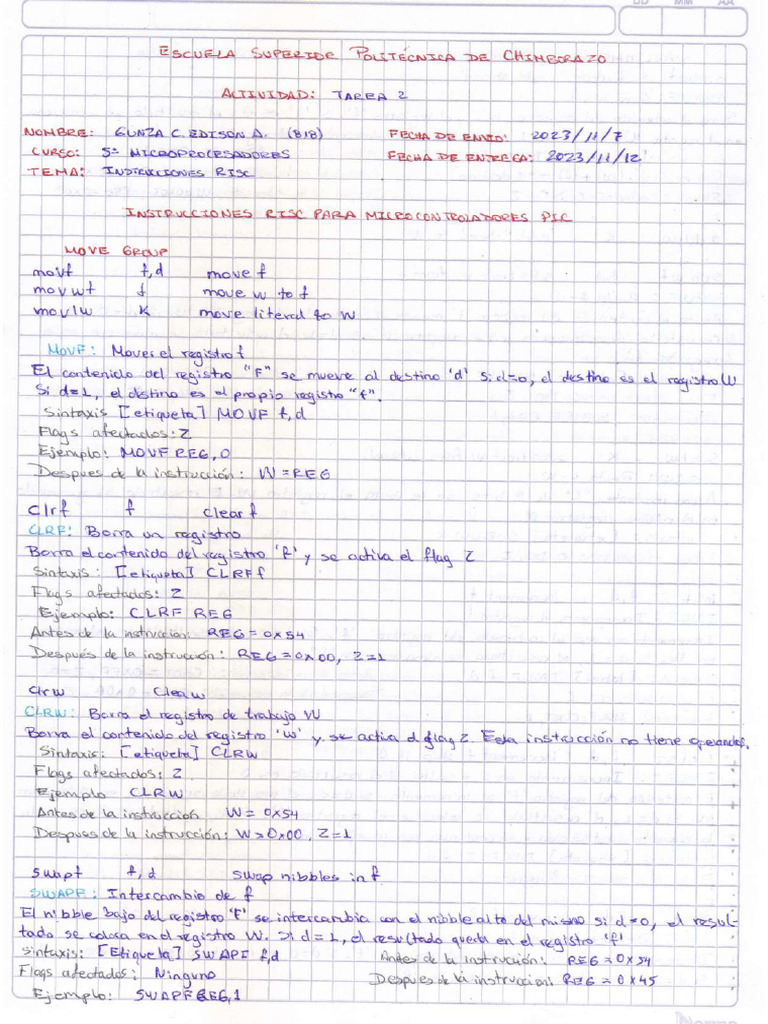 DD MM AA
ESCUELA SUPERIOR POLITÉCNICA DE CHIMBORAZO
ACTIVIDAD: TAREA 2
NOMBRE: GUNZA C. EDISON A. (818) FECHA DE ENVIO: 2023/11/7
CURSO: 5º MICROPROCESADORES FECHA DE ENTREGA: 2023/11/12
TEMA: INSTRUCCIONES RISC
INSTRUCCIONES RISC PARA MICROCONTROLADORES PIC
MOVE GROUP
movf f,d move f
movwf f move w to f
movlw K move literal to W
MOVF: Mover el registro f
El contenido del registro "F" se mueve al destino 'd' Si d=0, el destino es el registro W
Si d=1, el destino es el propio registro "f".
Sintaxis [etiqueta] MOVF f,d
Flags afectados: Z
Ejemplo: MOVF REG,0
Despues de la instrucción: W=REG
clrf f clear f
CLRF: Borra un registro
Borra el contenido del registro 'f' y se activa el flag Z
Sintaxis: [etiqueta] CLRF f
Flags afectados: Z
Ejemplo: CLRF REG
Antes de la instruccion: REG=0x54
Después de la instrucción: REG=0x00, Z=1
clrw Clea w
CLRW: Borra el registro de trabajo W
Borra el contenido del registro 'w' y se activa el flag Z. Esta instrucción no tiene operandos.
Sintaxis: [etiqueta] CLRW
Flags afectados: Z
Ejemplo CLRW
Antes de la instrucción W=0x54
Despues de la instrucción: W=0x00, Z=1
swapf f,d swap nibbles in f
SWAPF: Intercambio de f
El nibble bajo del registro 'F' se intercambia con el nibble alto del mismo si d=0, el resul-
tado se coloca en el registro W. Si d=1, el resultado queda en el registro 'f'
sintaxis: [Etiqueta] SWAPF f,d Antes de la instrucción: REG=0x54
Flags afectados: Ninguno Despues de la instruccion: REG=0x45
Ejemplo: SWAPF REG,1